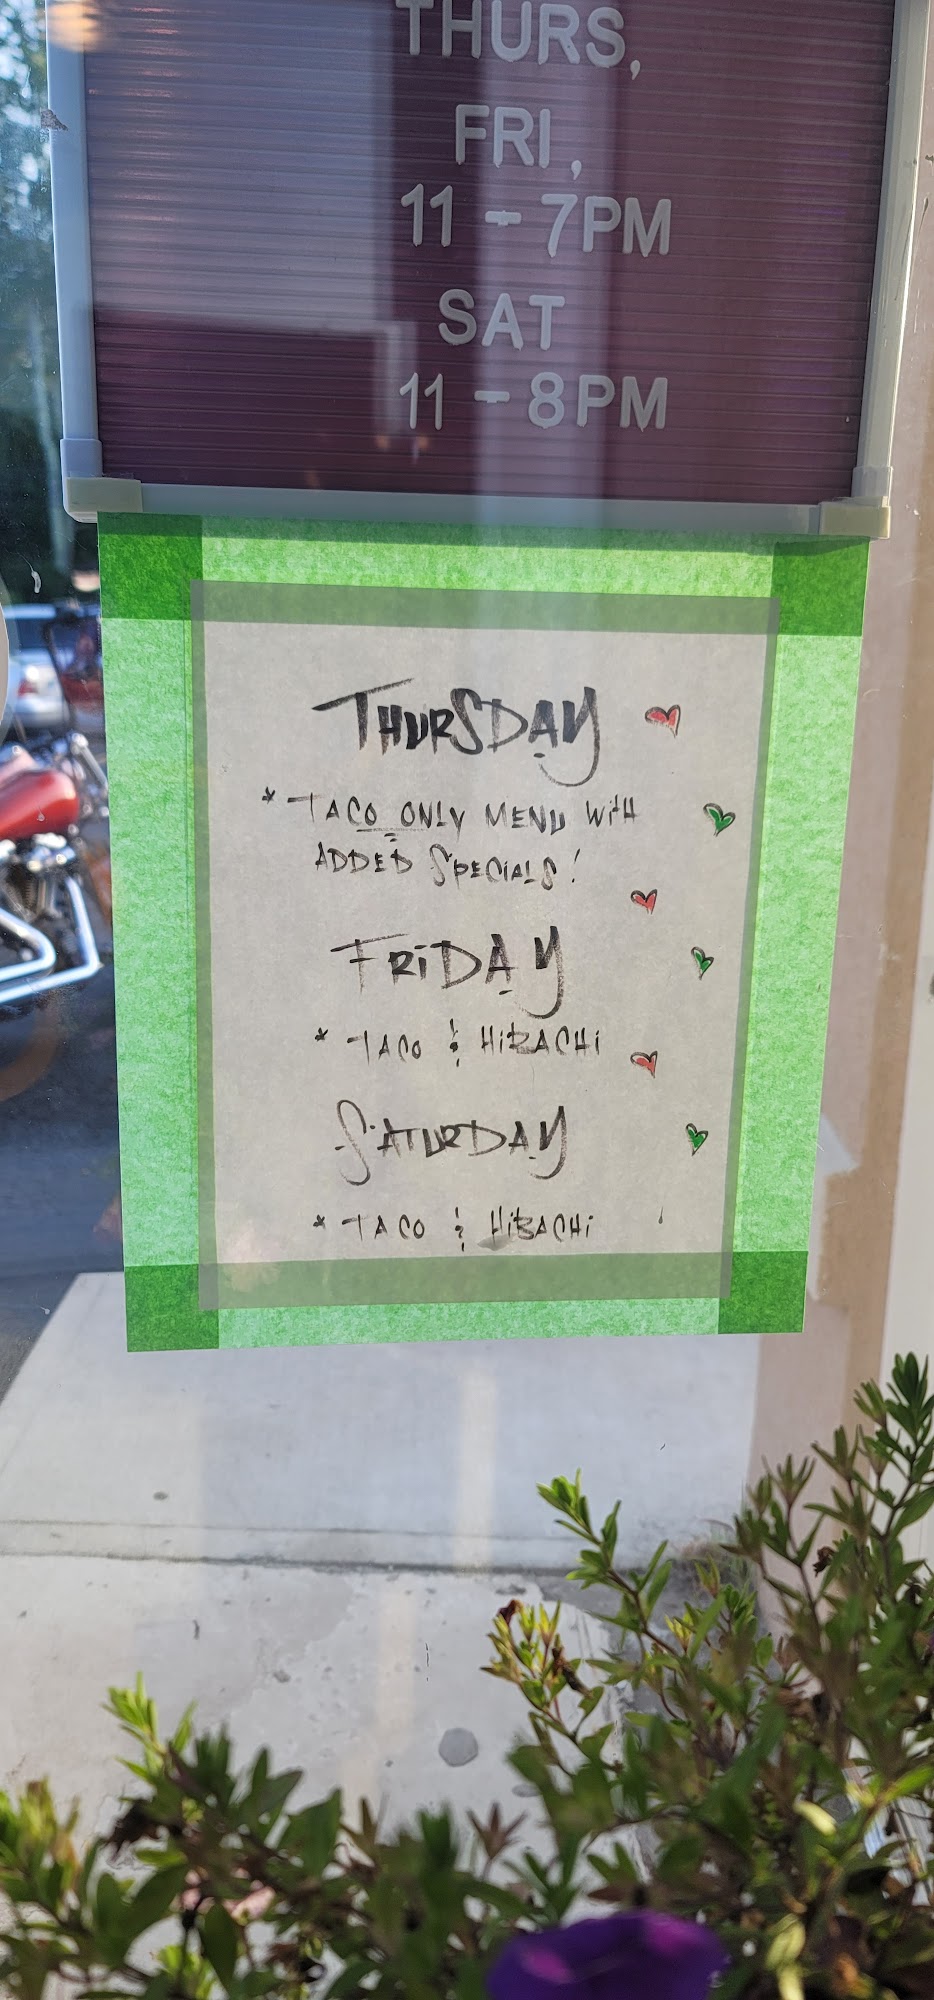 THURS,
FRI,
11 - 7PM
SAT
11 - 8PM
THURSDAY
* TACO ONLY MENU WITH
ADDED SPECIALS!
FRIDAY
* TACO & HIBACHI
SATURDAY
* TACO & HIBACHI